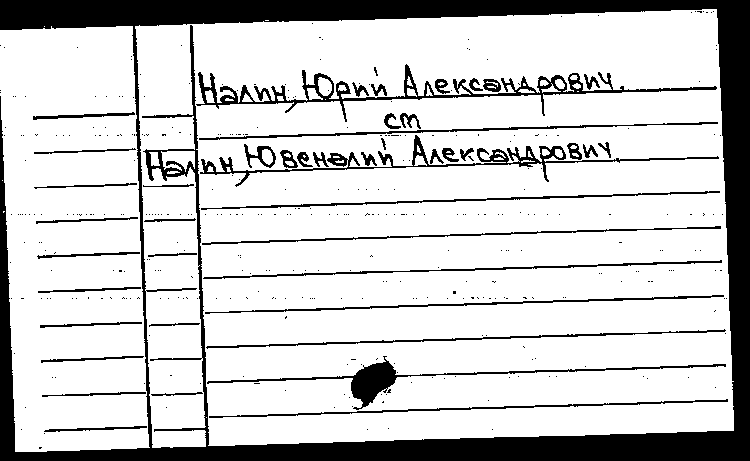 Налин, Юрий Александрович.
ст
Налин, Ювеналий Александрович